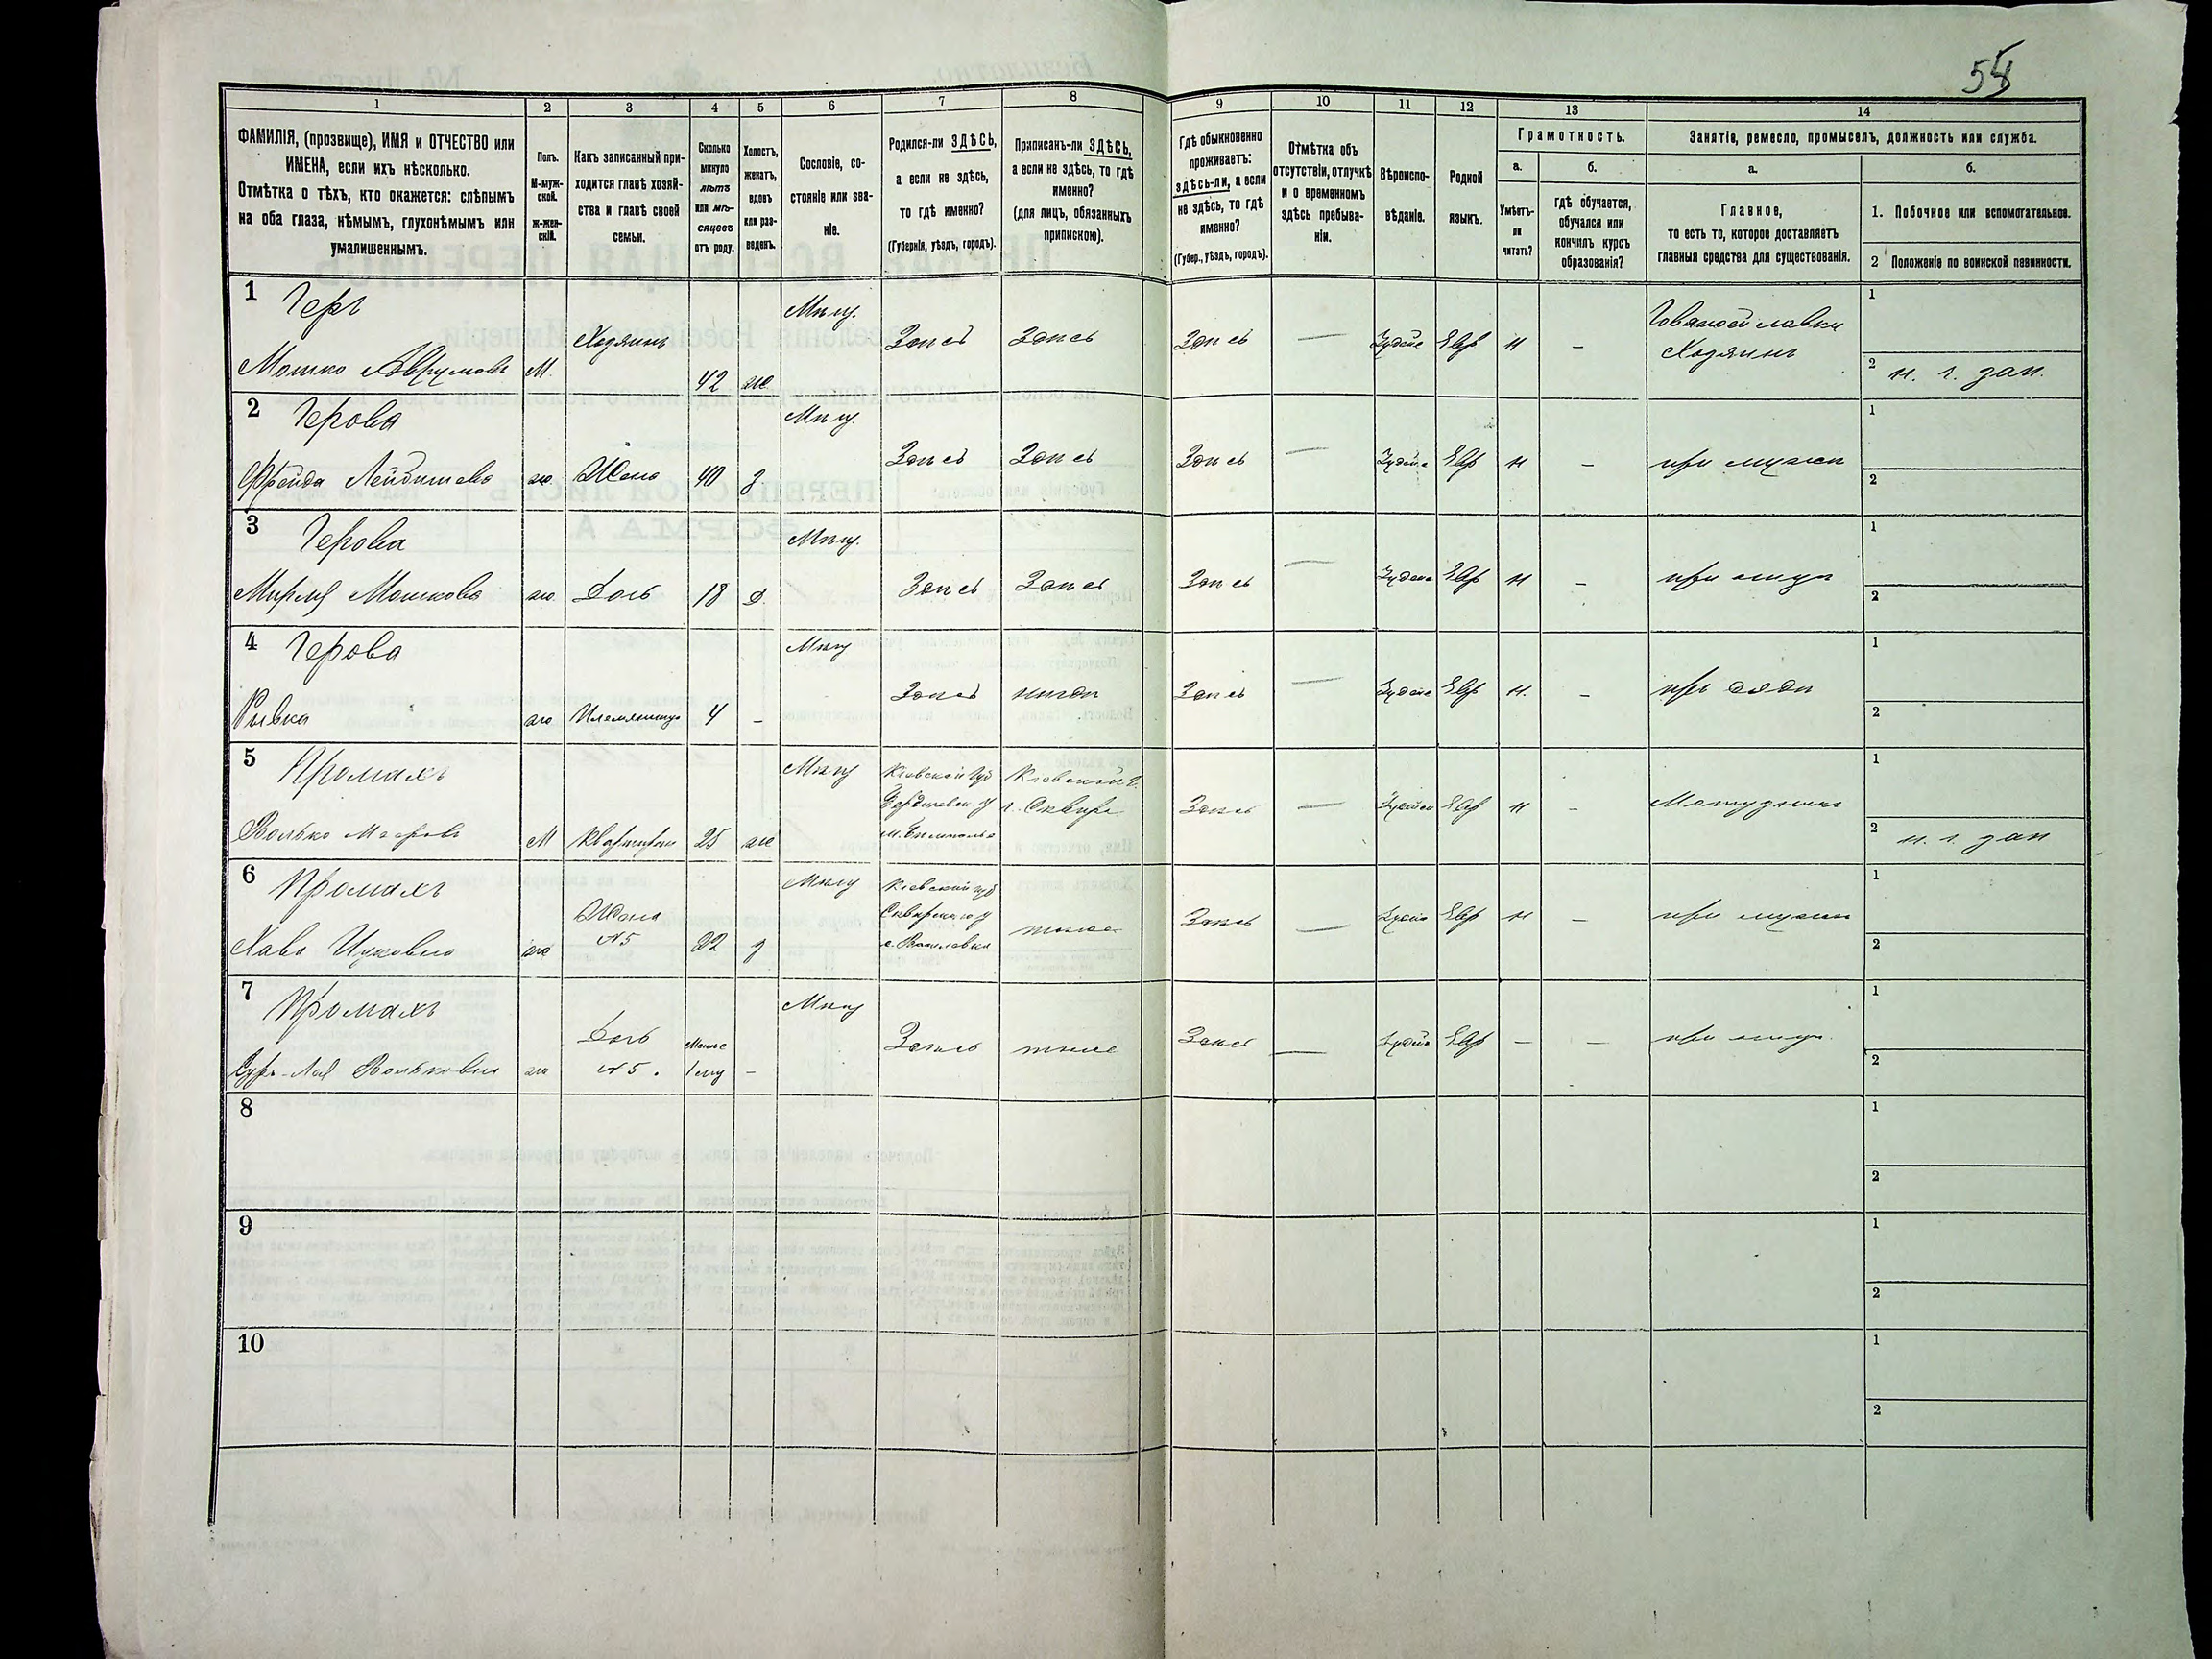 58
1 2 3 4 5 6 7 8 9 10 11 12 13 14
ФАМИЛІЯ, (прозвище), ИМЯ и ОТЧЕСТВО или
ИМЕНА, если ихъ нѣсколько.
Отмѣтка о тѣхъ, кто окажется: слѣпымъ
на оба глаза, нѣмымъ, глухонѣмымъ или
умалишеннымъ.
Полъ.
М-муж-
ской.
Ж-жен-
скій.
Какъ записанный при-
ходится главѣ хозяй-
ства и главѣ своей
семьи.
Сколько
минуло
лѣтъ
или мѣ-
сяцевъ
отъ роду.
Холостъ,
женатъ,
вдовъ
или раз-
веденъ.
Сословіе, со-
стояніе или зва-
ніе.
Родился-ли ЗДѢСЬ,
а если не здѣсь,
то гдѣ именно?
(Губернія, уѣздъ, городъ).
Приписанъ-ли ЗДѢСЬ,
а если не здѣсь, то гдѣ
именно?
(для лицъ, обязанныхъ
припискою).
Гдѣ обыкновенно
проживаетъ:
здѣсь-ли, а если
не здѣсь, то гдѣ
именно?
(Губер., уѣздъ, городъ).
Отмѣтка объ
отсутствіи, отлучкѣ
и о временномъ
здѣсь пребыва-
ніи.
Вѣроиспо-
вѣданіе.
Родной
языкъ.
Грамотность.
а.
Умѣетъ-
ли
читать?
б.
гдѣ обучается,
обучался или
кончилъ курсъ
образованія?
Занятіе, ремесло, промыселъ, должность или служба.
а.
Главное,
то есть то, которое доставляетъ
главныя средства для существованія.
б.
1. Побочное или вспомогательное.
2 Положеніе по воинской повинности.
1 Геръ
Мошко Аврумовъ М. Хозяинъ 42 ж Мѣщ. Здѣсь Здѣсь Здѣсь — Іудейс Евр н —
Хозяинъ
1
2 н. г. зап.
2 Герова
Фрейда Лейбишева ж. Жена 40 з Мѣщ. Здѣсь Здѣсь Здѣсь — Іудейс Евр н — при мужѣ
1
2
3 Герова
Мирля Мошкова ж. Дочь 18 д. Мѣщ. Здѣсь Здѣсь Здѣсь — Іудейс Евр н — при отцѣ
1
2
4 Герова
Ривка ж Племянница 4 — Мѣщ Здѣсь Здѣсь — Іудейс Евр н. — при дядѣ
1
2
5 Промахъ
Волько М Квартирант 25 ж Мѣщ
Кіевской Губ
Бердичевск у
Кіевской Г.
г. Сквира
Здѣсь — Іудейск Евр н —
1
2 н. г. зап
6 Промахъ
Хава Ицковна ж
Жена
№5
22 з Мѣщ
Кіевской губ
Сквирскаго у
тоже
Здѣсь — Іудейс Евр н — при мужѣ
1
2
7 Промахъ
Сура-Лея Вольковна ж
Дочь
№5.
Менѣе
1 году
— Мѣщ Здѣсь тоже Здѣсь — Іудейс Евр — — при отцѣ.
1
2
8
1
2
9
1
2
10
1
2